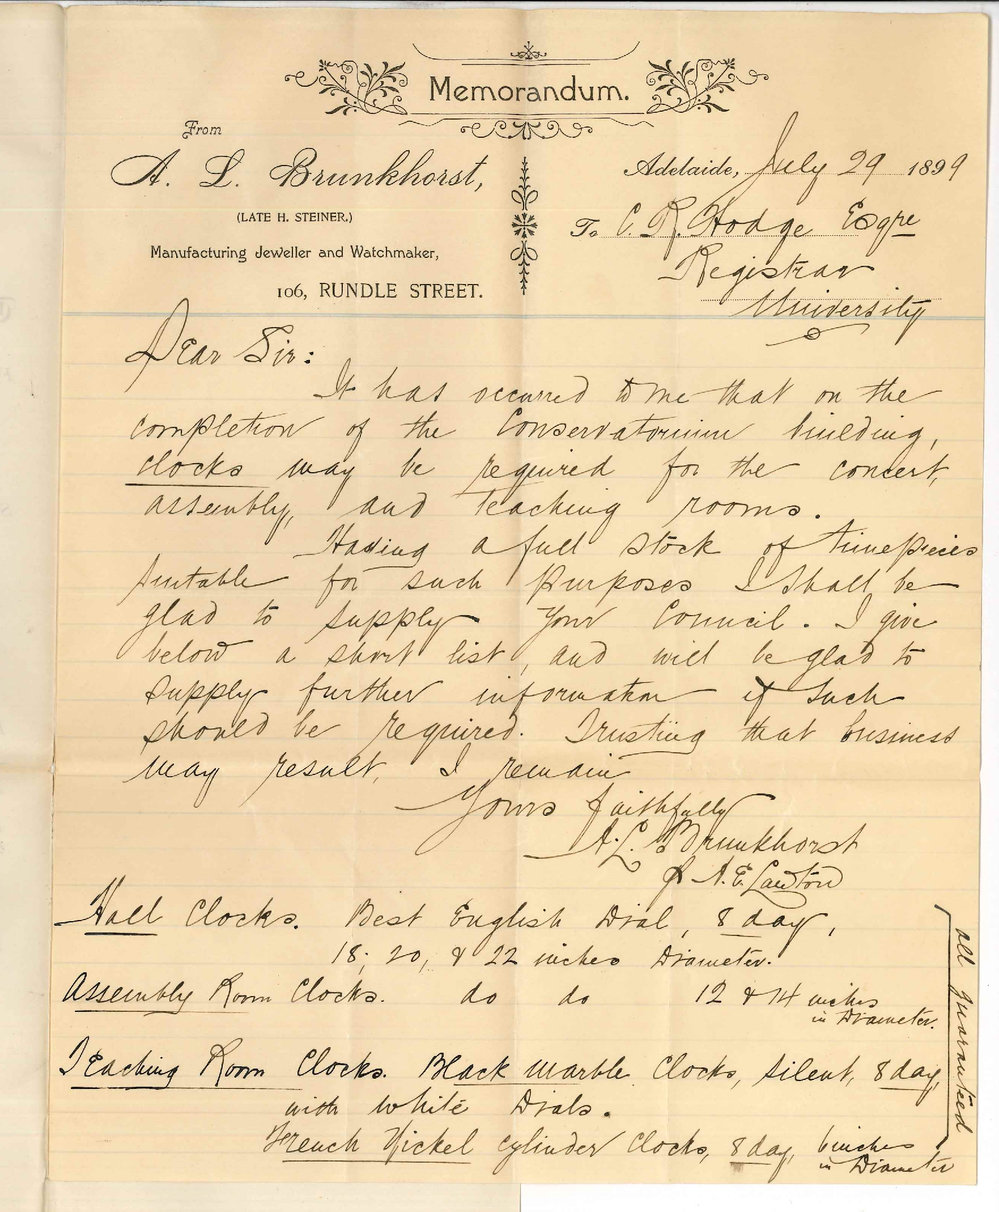 Memorandum.
From
A. L. Brunkhorst,
(LATE H. STEINER.)
Manufacturing Jeweller and Watchmaker,
106, RUNDLE STREET.
Adelaide, July 29 1899
To C. R. Hodge Esqre
Registrar
University
Dear Sir:
It has occurred to me that on the
completion of the Conservatorium building,
clocks may be required for the concert,
assembly, and teaching rooms.
Having a full stock of timepieces
suitable for such purposes I shall be
glad to supply your Council. I give
below a short list, and will be glad to
supply further information if such
should be required. Trusting that business
may result, I remain
Yours faithfully
A. L. Brunkhorst
p A. E. Lawton
Hall Clocks. Best English Dial, 8 day,
18, 20, & 22 inches Diameter.
Assembly Room Clocks. do do 12 & 14 inches
in Diameter.
Teaching Room Clocks. Black marble Clocks, silent, 8 day
with white Dials.
French Nickel cylinder Clocks, 8 day, 6 inches
in Diameter
all guaranteed